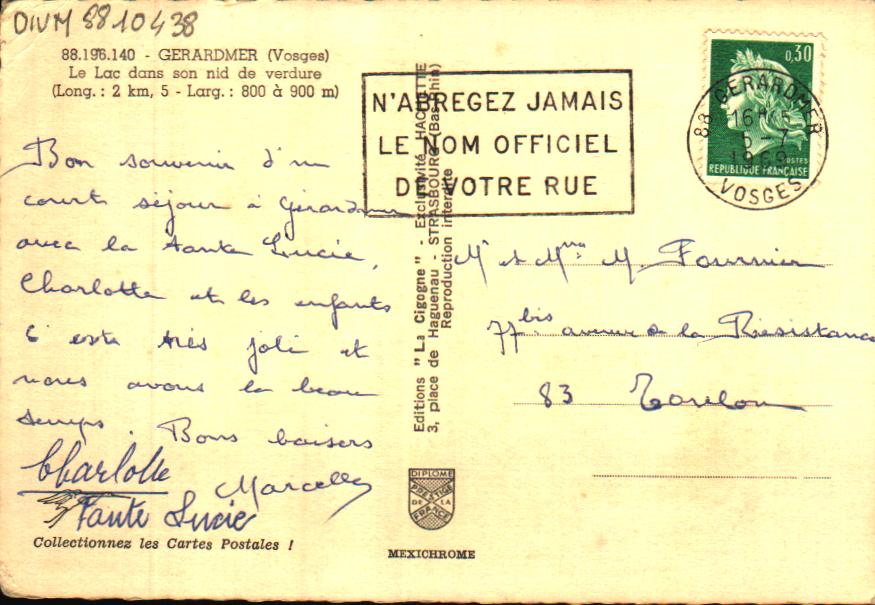 DIVM 8810438
88.196.140 - GERARDMER (Vosges)
Le Lac dans son nid de verdure
(Long. : 2 km, 5 - Larg. : 800 à 900 m)
Bon souvenir d'un
court séjour à Gérardmer
avec la tante Lucie,
Charlotte et les enfants
C'est très joli et
nous avons le beau
temps. Bons baisers
Marcelle
Charlotte
Tante Lucie
Collectionnez les Cartes Postales !
Editions "La Cigogne" - Exclusivité HACHETTE
3, place de Haguenau - STRASBOURG (Bas-Rhin)
Reproduction interdite
DIPLOME
PRESTIGE
DE LA
FRANCE
MEXICHROME
N'ABREGEZ JAMAIS
LE NOM OFFICIEL
DE VOTRE RUE
0,30
POSTES
REPUBLIQUE FRANÇAISE
88 GERARDMER
16H
5-7
1969
VOSGES
Mr et Mme M. Fournier
77bis avenue de la Résistance
83 Toulon